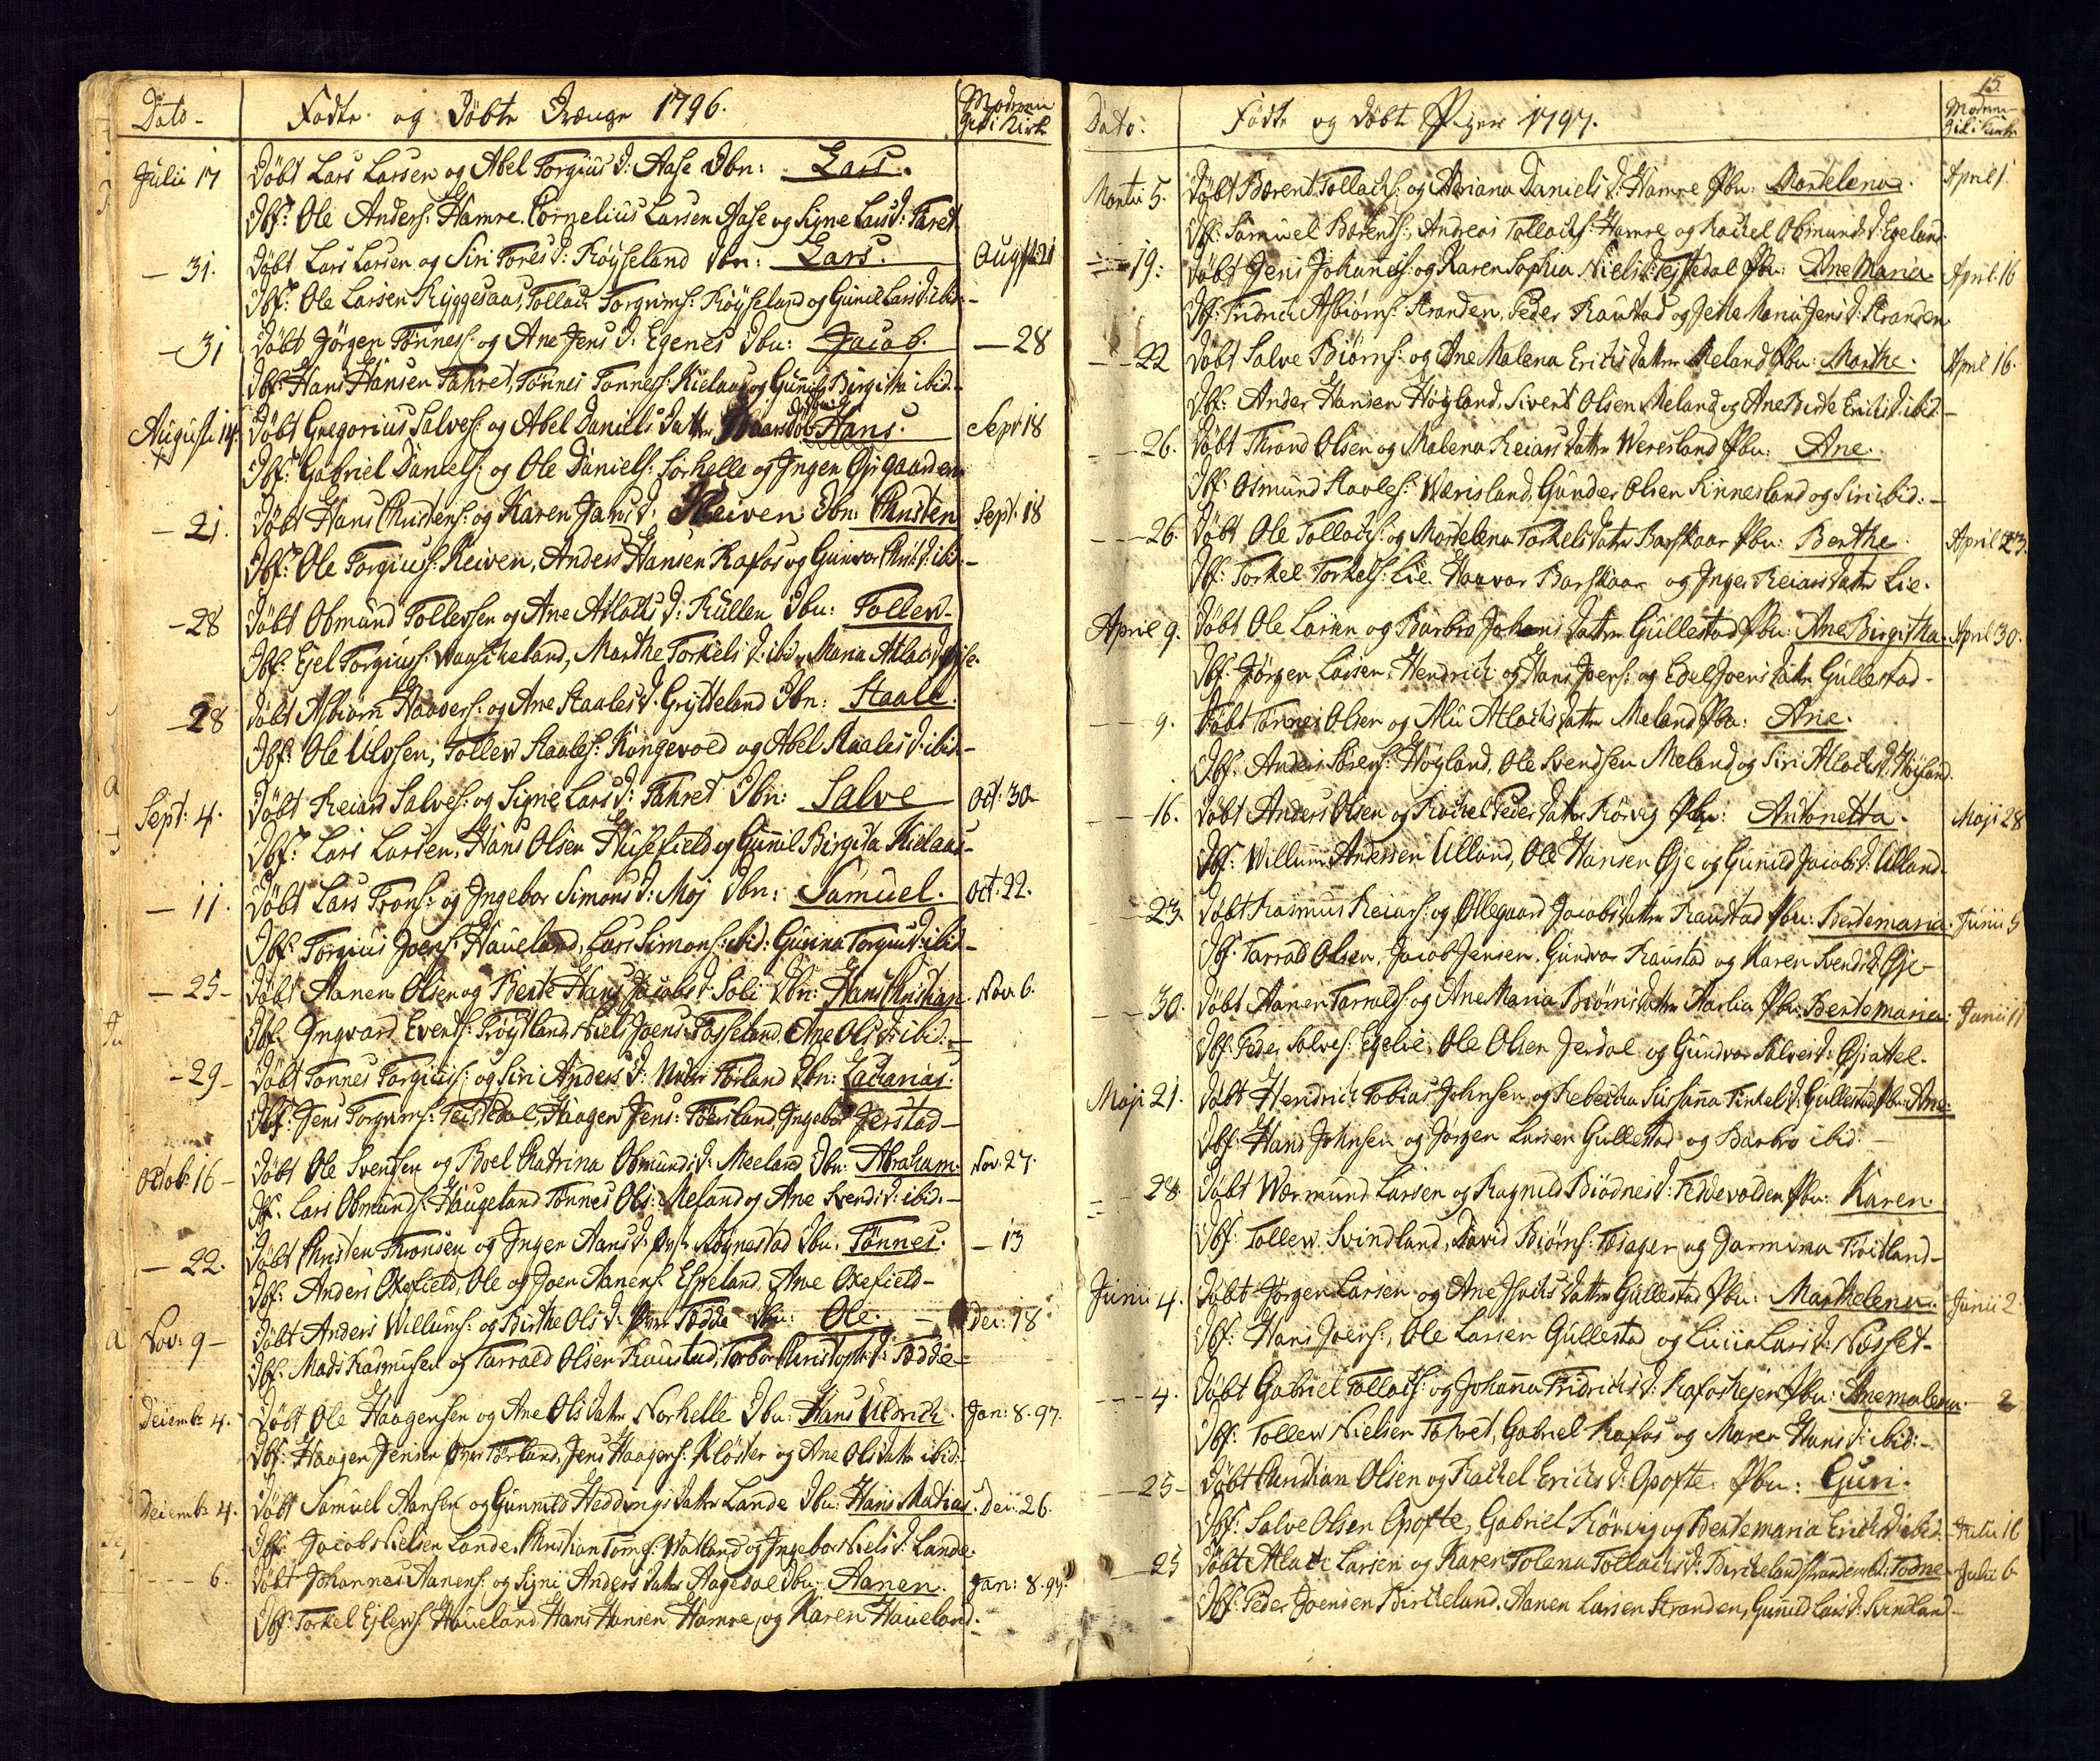 Dato - Fødte og Døbte Drænge 1796. Moderen gik i Kirk
Julii 17 Døbt Lars Larsen og Abel Torgius D: Aase Dbn: Lars.
Dbf: Ole Anders: Hamre. Cornelius Larsen Aase og Signe Lars D: Faret
- 31. Døbt Lars Larsen og Siri Tores D: Röyseland Dbn: Lars. Augst: 21
Dbf: Ole Larsen Ryggesaas, Tollack Torgrims: Röyseland og Gunild Lars D: ibid:-
- 31 Døbt Jörgen Tönnes: og Ane Jens D: Egenes Dbn: Jacob. - 28
Dbf: Hans Hansen Fahret, Tönnes Tonnes: Kielaas og Gunild Birgitha ibid.-
Augusti 14. Døbt Gregorius Salves: og Abel Daniels Datter Hans. Sept: 18
Dbf: Gabriel Daniels: og Ole Daniels: Lorkelle og Inger
- 21. Døbt Hans Christens: og Karen Jans D: Reiven Dbn: Christen Sept: 18
Dbf: Ole Torgius: Reiven, Anders Hansen Rafos og Gunvor Christ: D: ibd:-
- 28 Døbt Obmund Tollevsen og Ane Atlacks D: Kullen Dbn: Tollew-
Dbf: Ejel Torgius: Marthe Torkels D: ibid, Maria Atlacks D:
- 28 Døbt Asbiörn Haavors: og Ane Staales D: Grytteland Dbn: Staale.
Dbf: Ole Ulvsen, Tollew Staales: Kongevold og Abel Staales D: ibid.-
Sept: 4. Døbt Reiars Salves: og Signe Lars D: Fahret Dbn: Salve Oct: 30-
Dbf: Lars Larsen, Hans Olsen Husefield og Gunnil Birgita Kielaas-
- 11. Døbt Lars Trons: og Ingebor Simons D: Moj Dbn: Samuel. Oct: 22.
Dbf: Torgius Joens: Haueland, Lars Simons: ibid: Gurina Torgius D: ibid-
- 25- Døbt Aanen Olsen og Bente Hans Jacobs D: Soli Dbn: Hans Christian. Nov. 6.
Dbf: Ingvard Events: Fröytland, Niels Joens: Fosseland. Ane Ols D: ibid.-
- 29- Døbt Tonnes Torgius: og Siri Anders D: Förland Dbn: Zacharias.
Dbf: Jens Torgrims: Teistedal, Haagen Jens: Förland, Ingebor Jerstad-
Octob: 16- Døbt Ole Svensen og Boel Catrina Obmunds D: Meeland Dbn: Abraham. Nov: 27.
Dbf. Lars Obmunds: Haugeland Tönnes Ols: Meland og Ane Svends D: ibid.-
- 22. Døbt Christen Thronsen og Inger Aans D: Röynestad Dbn: Tönnes. - 13
Dbf: Anders Oxefield, Ole og Joen Aanens: Espeland, Ane Oxefield-
Nov: 9- Døbt Anders Willums: og Birthe Ols D: Fedde Dbn: Ole. - Dec: 18
Dbf: Mads Rasmusen og Tarrald Olsen Raustad, Torbor Christophs D: Fedde-
Decembr 4. Døbt Ole Haagensen og Ane Ols datter Norhelle Dbn: Hans Uldrich. Jan: 8. 97.
Dbf: Haagen Jensen Förland, Jens Haagens: Klöster og Ane Ols datter ibid.
Decembr 4. Døbt Samuel Aansen og Gunnild Heddings datter Lande Dbn: Hans Mathias. Dec: 26.
Dbf: Jacob Nielsen Lande. Christian Tonnes: Watland og Ingebor Niels D: Lande.
- - 6. Døbt Johannes Aanens: og Signi Anders datter Aagedal Dbn: Aanen. Jan: 8. 97.
Dbf: Torkel Ejlevs: Haueland Hans Hansen Hamre, og Karen Haueland.
15.
Dato. Födte og döbte Piger 1797. Moderen Gik i Kirke
Martii 5. Døbt Bærent Tollacks: og Adriana Daniels D: Hamre Pbn: Martelena. April 1.
Dbf: Samuel Børents:, Andreas Tollacks: Hamre og Rachel Obmunds D: Egeland.
- 19. Døbt Jens Johanes: og Karen Sophia Niels D: Tejstedal Pbn: Ane Maria. April 16
Dbf: Fridrich Asbiörns: Stranden, Peder Raustad og Jette Maria Jens D: Stranden
- 22 Døbt Salve Biörns: og Ane Malena Erichs datter Meland Pbn: Marthe. April 16.
Dbf: Ander Hansen Höyland, Sivert Olsen Meland og Ane Birte Erichs D: ibid.-
- 26. Døbt Thrond Olsen og Malena Reiars datter Weresland Pbn: Ane.
Dbf: Osmund Staales: Værisland, Gunder Olsen Sinnesland og Siri ibid:-
- 26. Døbt Ole Tollacks: og Martelena Torkels datter Barskaar Pbn: Berthe. April 23.
Dbf: Torkel Torkels: Lie. Haavor Barskaar og Inger Reiars datter Lie.
April 9. Døbt Ole Larsen og Barbro Johans datter Gullestad Pbn: Ane Birgitha. April 30.
Dbf: Jörgen Larsen, Hendrich og Hans Joens: og Edel Joens datter Gullestad-
- 9. Døbt Tönnes Olsen og Atlacks datter Meland Pbn: Ane.
Dbf: Anders Sörens: Höyland, Ole Svendsen Meland og Siri Atlacks D: Höyland.
- 16. Døbt Anders Olsen og Rachel Peder datter Rörvig Pbn: Antonetta. Maji 28
Dbf: Willum Andersen Ulland, Ole Hansen Øje og Gunild Jacobs D: Ulland-
- 23. Døbt Rasmus Reiars: og Ollegaard Jacobs datter Raustad Pbn: Bertemaria. Junii 5
Dbf: Tarrald Olsen, Jacob Jensen, Gundvor Raustad og Karen Svends D: Øje-
- 30. Døbt Aanen Tarralds: og Ane Maria Biörns datter Aarlia Pbn: Bertemaria. Junii 11
Dbf: Peder Salves: Egelie, Ole Olsen Jerdal og Gundvor Salves D:
Maji 21. Døbt Hendrich Tobias Johnsen og Rebecha Susanna Tinkels D: Gullestad Pbn: Ane.
Dbf: Hans Johnsen og Jörgen Larsen Gullestad og Barbro ibid.-
- 28. Døbt Wærmund Larsen og Ragnild Biodnes D: Feddevolden Pbn: Karen.
Dbf: Tollew Svindland, David Biörns: og Jarmina Fröitland-
Junii 4. Døbt Jörgen Larsen og Ane Isacks datter Gullestad Pbn: Marthelena. Junii 2.
Dbf: Hans Joens:, Ole Larsen Gullestad og Lucia Lars D: Næsset-
- 4. Døbt Gabriel Tollacks: og Johanna Fridrichs D: Rafoshejen Pbn: Anemalena. - 2
Dbf: Tollew Nielsen Fahret, Gabriel Rafos og Maren Hans D: ibid:-
- 25- Døbt Christian Olsen og Rachel Erichs D: Opofte Pbn: Guri.
Dbf: Salve Olsen Opofte, Gabriel Rörvig og Bertemaria Erichs D: ibid. Julii 16
- 25 Døbt Atlack Larsen og Karen Tolena Tollacks D: Birckelandstranden Pbn: Todne. Julii 6
Dbf: Peder Joensen Birckeland, Aanen Larsen Stranden, Gunnild Lars D: Svindland-